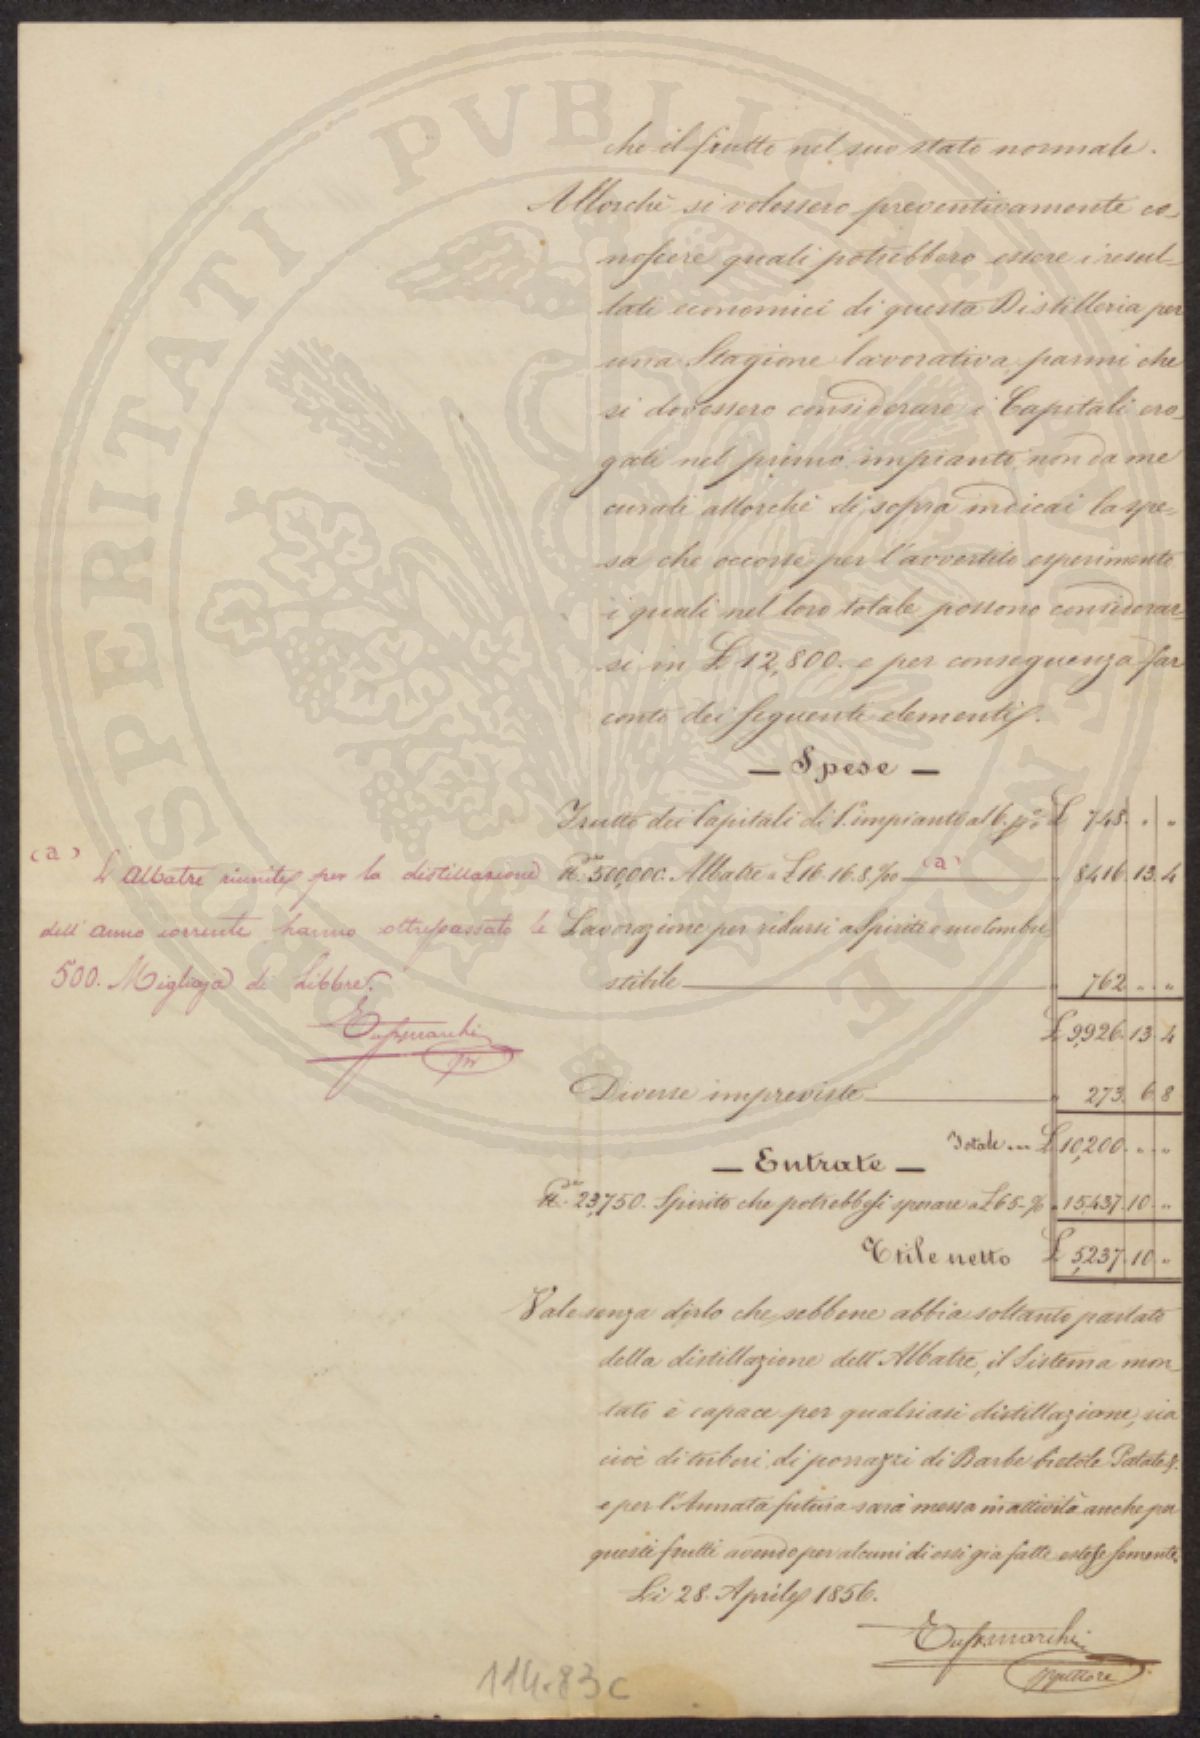 che il frutto nel suo stato normale.
Allorchè si volessero preventivamente co-
noscere quali potrebbero essere i resul-
tati economici di questa Distilleria per
una Stagione lavorativa, parmi che
si dovessero considerare i Capitali ero-
gati nel primo impianto, non da me
curati allorchè di sopra indicai la spe-
sa che occorse per l'avvertito esperimento
i quali nel loro totale possono considerar-
si in £ 12,800. e per conseguenza far
conto dei seguenti elementi.
— Spese —
Frutto dei Capitali di 1.° impianto al 6. p% £ 748. " "
500,000. Albatre a £ 16.16.8 ‰ (a) " 8416.13.4
Lavorazione per ridursi a Spirito e
stibile " 762 " "
£ 9,926.13.4
Diverse impreviste " 273. 6 8
Totale ... £ 10,200. " "
— Entrate —
23,750. Spirito che potrebbesi sperare a £ 65 % " 15,437.10 "
Utile netto £ 5,237.10 "
(a)
L'Albatre riunite per la distillazione
dell'anno corrente hanno oltrepassato le
500. Migliaja di Libbre.
Vale senza dirlo che sebbene abbia soltanto parlato
della distillazione dell'Albatre, il Sistema mon-
tato è capace per qualsiasi distillazione, sia
cioè di tuberi, di porrazzi di Barbe bietole Patate &.
e per l'Annata futura sarà messa in attività anche per
questi frutti avendo per alcuni di essi già fatte estese semente.
Li 28. Aprile 1856.
114.83c
SPERITATI PVBLICAE